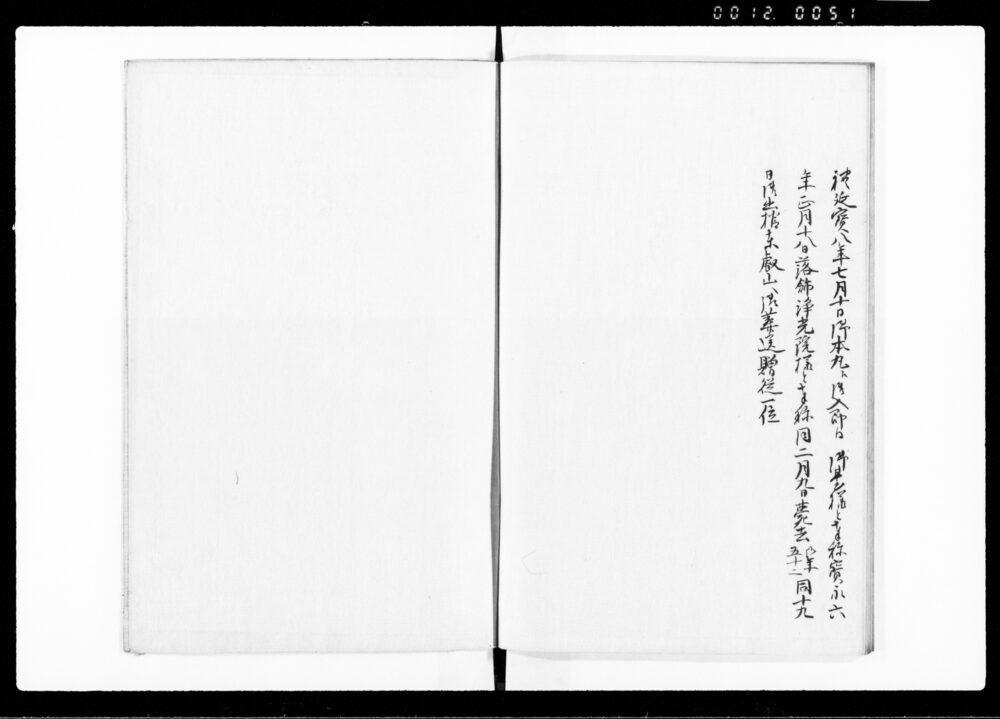 0012.0051
禮延寶八年七月十日御本丸へ御入即日 御臺様と奉称寳永六
年正月十八日落飾浄光院様と奉称同二月九日薨去 御年五十二 同十九
日御出棺東叡山へ御葬送贈從一位